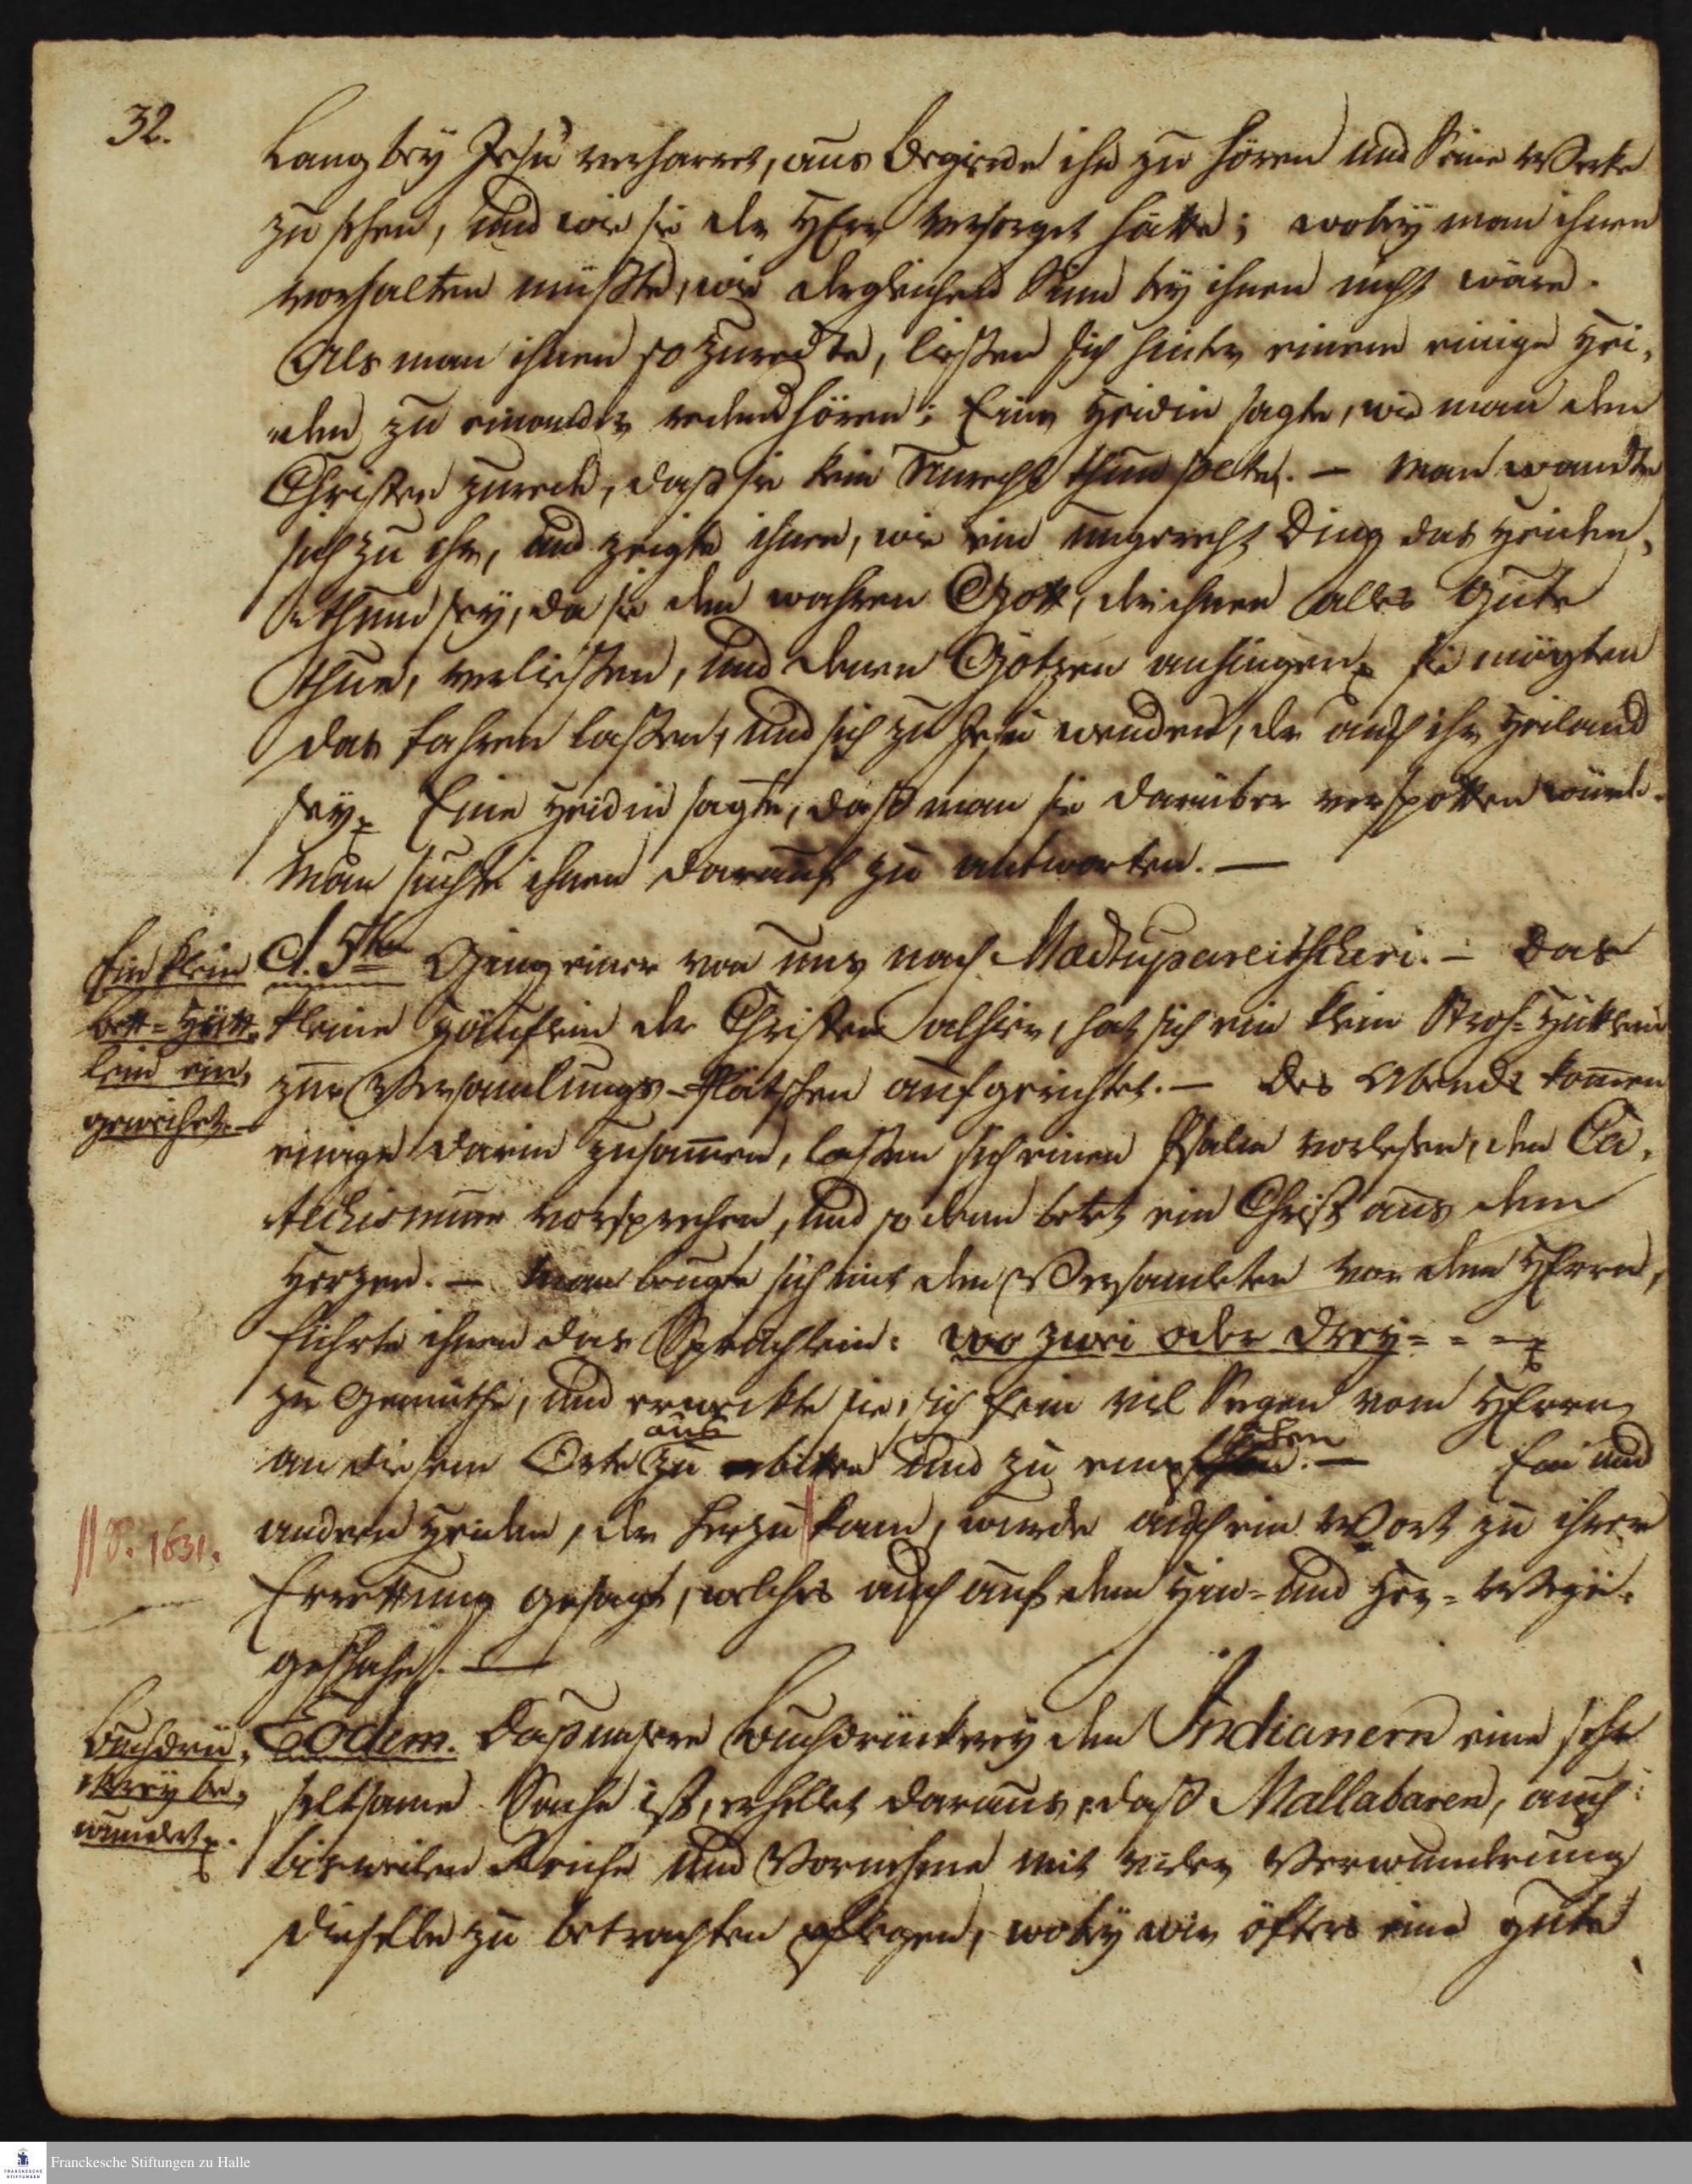 32.
Lang bey Jesu verharret, aus Begierde ihn zu hören und Seine Werke
zu sehen, und wie sie der HErr versorget hätte; wobey man ihnen
vorhalten müßte, wie dergleichen Sinn bey ihnen nicht wäre.
Als man ihnen so zuredte, ließen sich hinter einem einige Hei,
den zu einander reden hören: Eine Heidin sagte, wie man den
Christen zurede, daß sie kein Unrecht thun solten. — Man wandte
sich zu ihr, und zeigte ihnen, wie ein ungerecht Ding das Heiden,
thum sey, da sie den wahren Gott, der ihnen alles Gute
thue, verließen, und denen Götzen anhingen, sie mögten
das fahren laßen, und sich zu Jesu wenden, der auch ihr Heiland
sey. Eine Heidin sagte, daß man sie darüber verspotten würde.
Man suchte ihnen darauf zu antworten. —
Ein klein
bett=Hütt,
lein ein,
geweihet. —
d. 5ten Ging einer von uns nach Madtupareitscheri. — Das
kleine Häuflein der Christen alhier, hat sich ein klein Stroh=Hüttlein
zum Versamlungs-Plätzchen aufgerichtet. — Des Abends kommen
einige darin zusammen, laßen sich einen Psalm vorlesen, den Ca,
techismum vorsprechen, und so denn betet ein Christ aus dem
Herzen. — Man beugte sich mit den Versamleten vor dem HErrn,
führte ihnen das Sprüchlein: wo zwei oder drey= = =
zu Gemüthe, und erweckte sie, sich fein viel Segen vom HErrn
an diesem Orte auszubitten und zu empfahen. — Ein und
|| P. 1631.
andern Heiden, der herzu || kam, wurde auch ein Wort zu ihrer
Errettung gesagt, welches auch auf dem Hin= und Her=Wege
geschahe. —
Buchdru,
ckerey be,
wundert.
Eodem. Daß unsere Buchdruckerey den Indianern eine sehr
seltsame Sache ist, erhellet daraus, daß Mallabaren, auch
bisweilen Reiche und Vornehme mit vieler Verwunderung
dieselbe zu betrachten pflegen, wobey wir öfters eine gute
Franckesche Stiftungen zu Halle